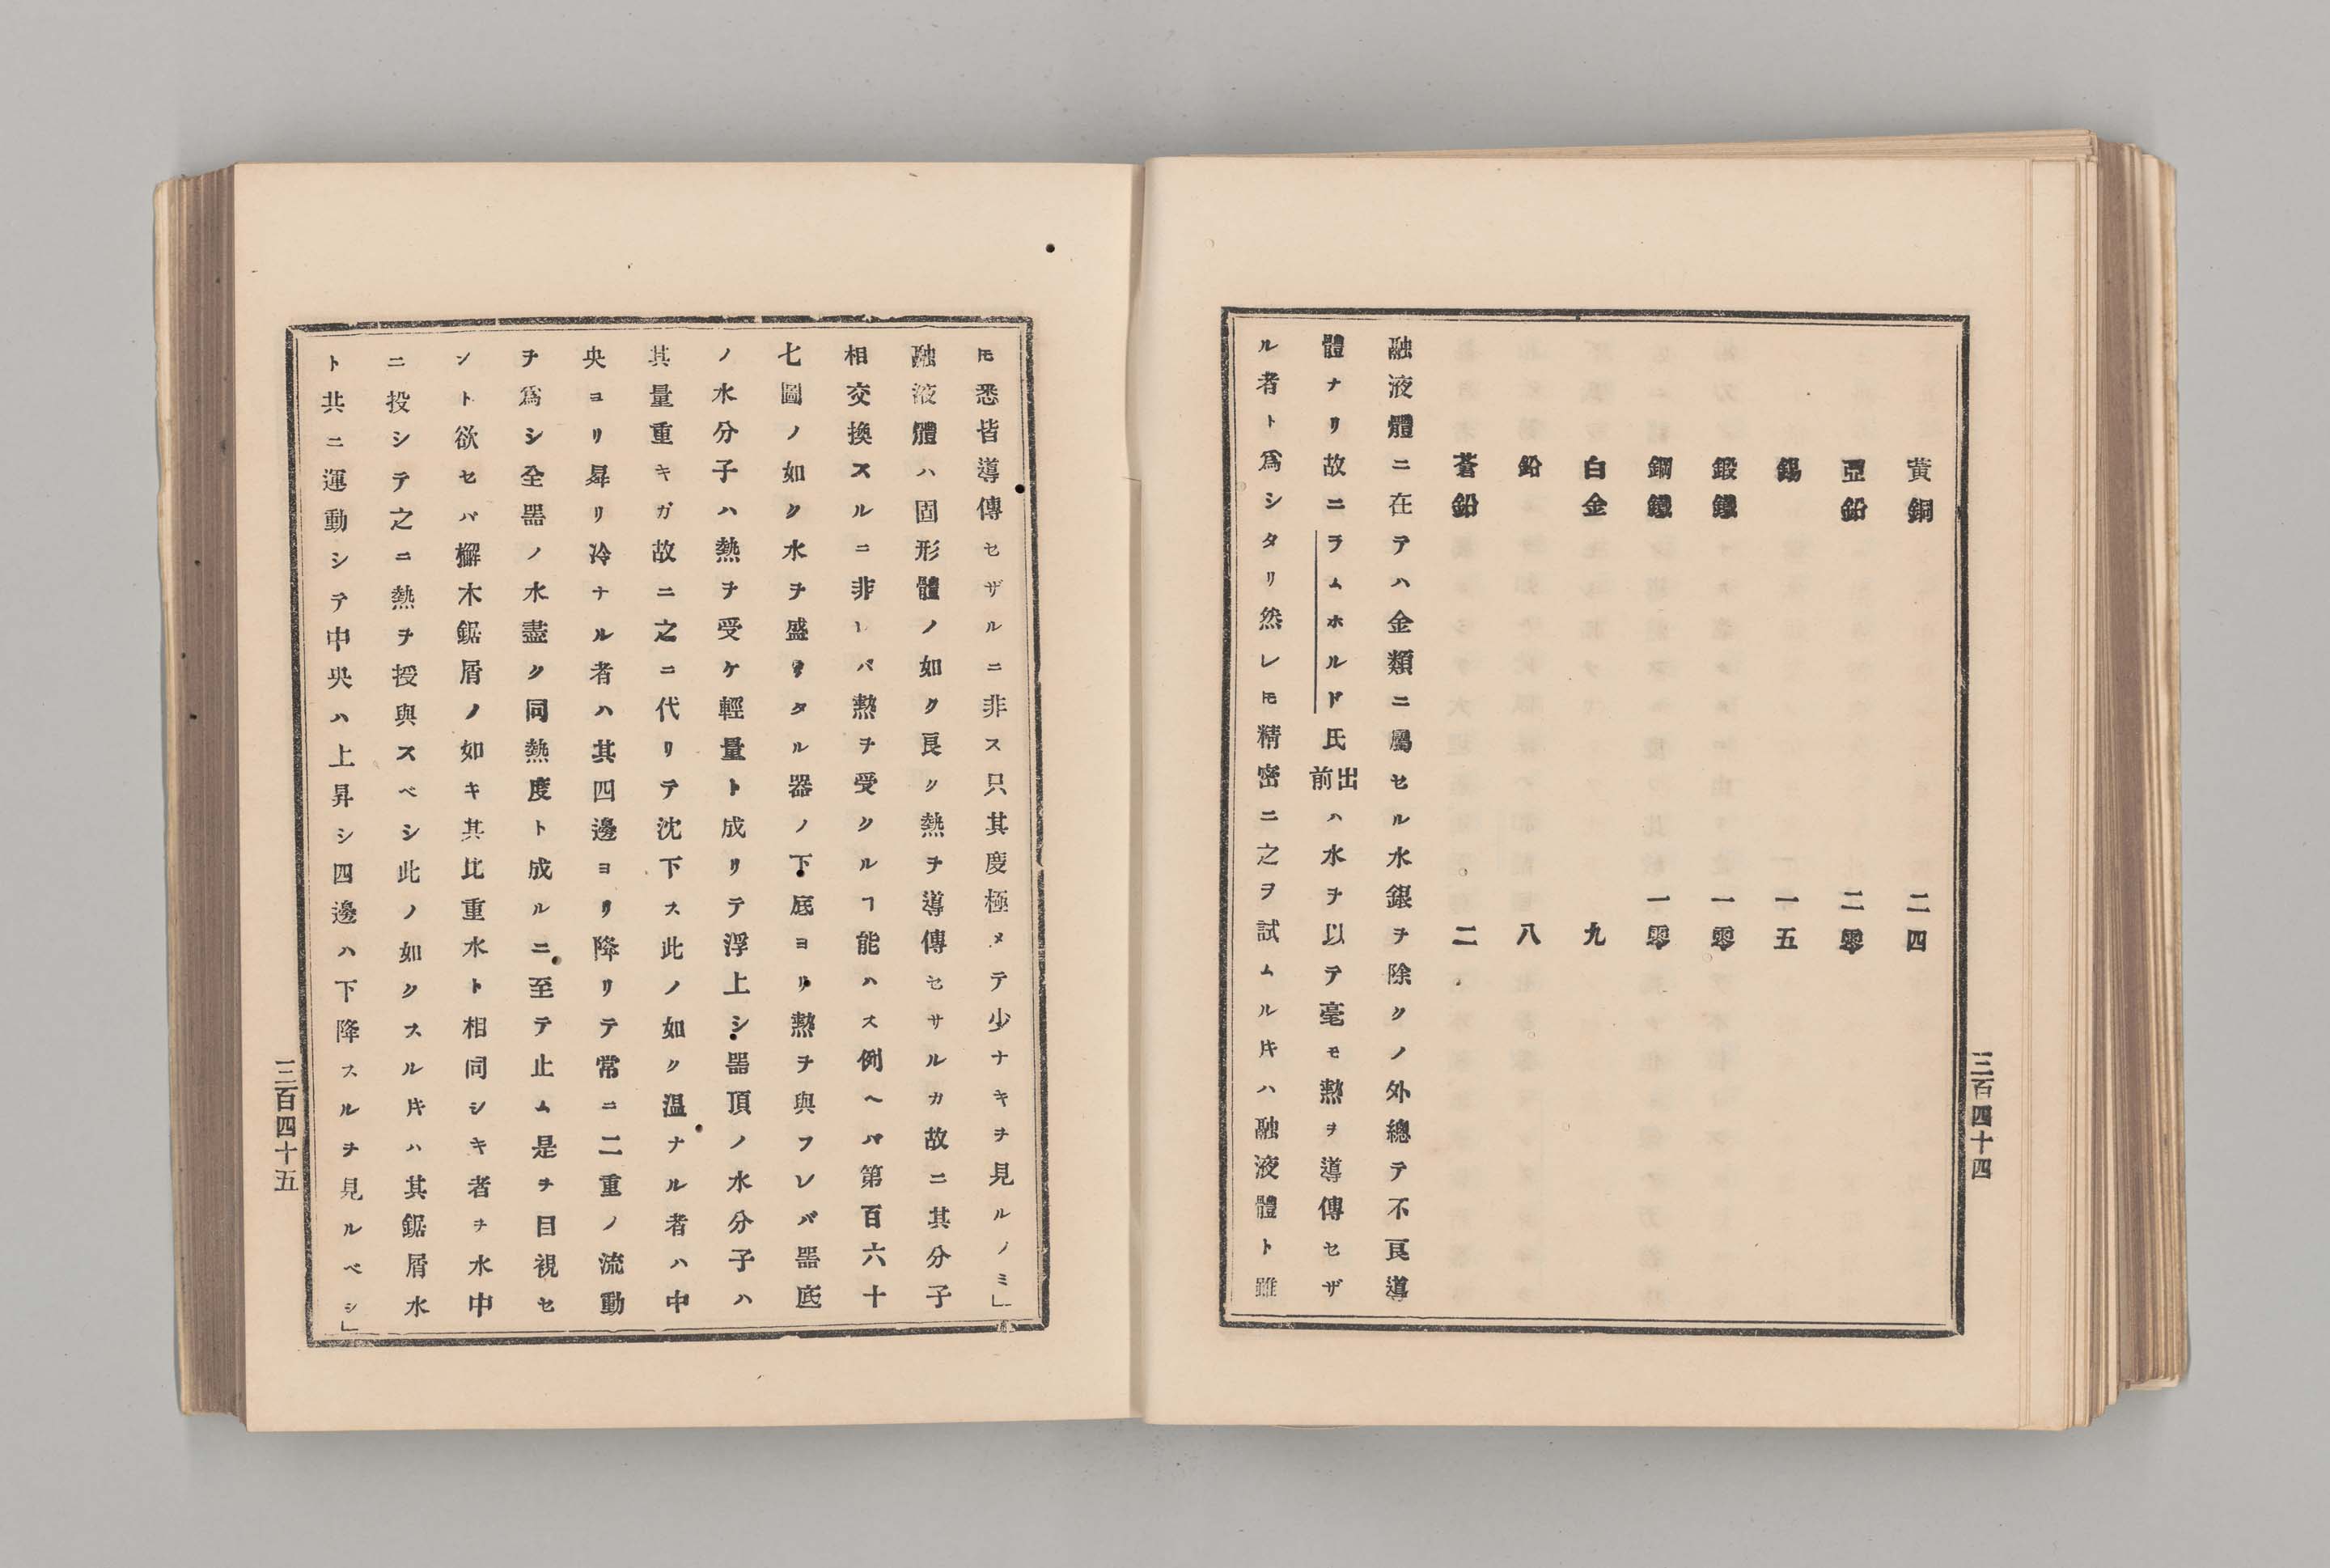 黄銅 二四
亞鉛 二零
錫 一五
鍛鐵 一零
鋼鐵 一零
白金 九
鉛 八
蒼鉛 二
融液體ニ在テハ金類ニ屬セル水銀ヲ除クノ外總テ不良導
體ナリ故ニラムホルド氏前出ハ水ヲ以テ毫モ熱ヲ導傳セザ
ル者ト爲シタリ然レ𪜈精密ニ之ヲ試ムルキハ融液體ト雖
三百四十四
𪜈悉皆導傳セザルニ非ス只其度極メテ少ナキヲ見ルノミ」
融液體ハ固形體ノ如ク良ク熱ヲ導傳セサルカ故ニ其分子
相交換スルニ非レバ熱ヲ受クルヿ能ハス例ヘバ第百六十
七圖ノ如ク水ヲ盛リタル器ノ下底ヨリ熱ヲ與フレバ器底
ノ水分子ハ熱ヲ受ケ輕量ト成リテ浮上シ器頂ノ水分子ハ
其量重キガ故ニ之ニ代リテ沈下ス此ノ如ク温ナル者ハ中
央ヨリ昇リ冷ナル者ハ其四邊ヨリ降リテ常ニ二重ノ流動
ヲ爲シ全器ノ水盡ク同熱度ト成ルニ至テ止ム是ヲ目視セ
ント欲セバ檞木鋸屑ノ如キ其比重水ト相同シキ者ヲ水中
ニ投シテ之ニ熱ヲ授與スベシ此ノ如クスルキハ其鋸屑水
ト共ニ運動シテ中央ハ上昇シ四邊ハ下降スルヲ見ルベシ」
三百四十五